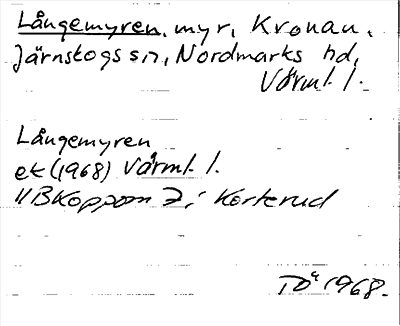 Långemyren, myr, Kronan,
Järnskogs sn, Nordmarks hd,
Värml. l.
Långemyren
ek (1968) Värml. l.
11BKoppom 7; Korterud
1968.